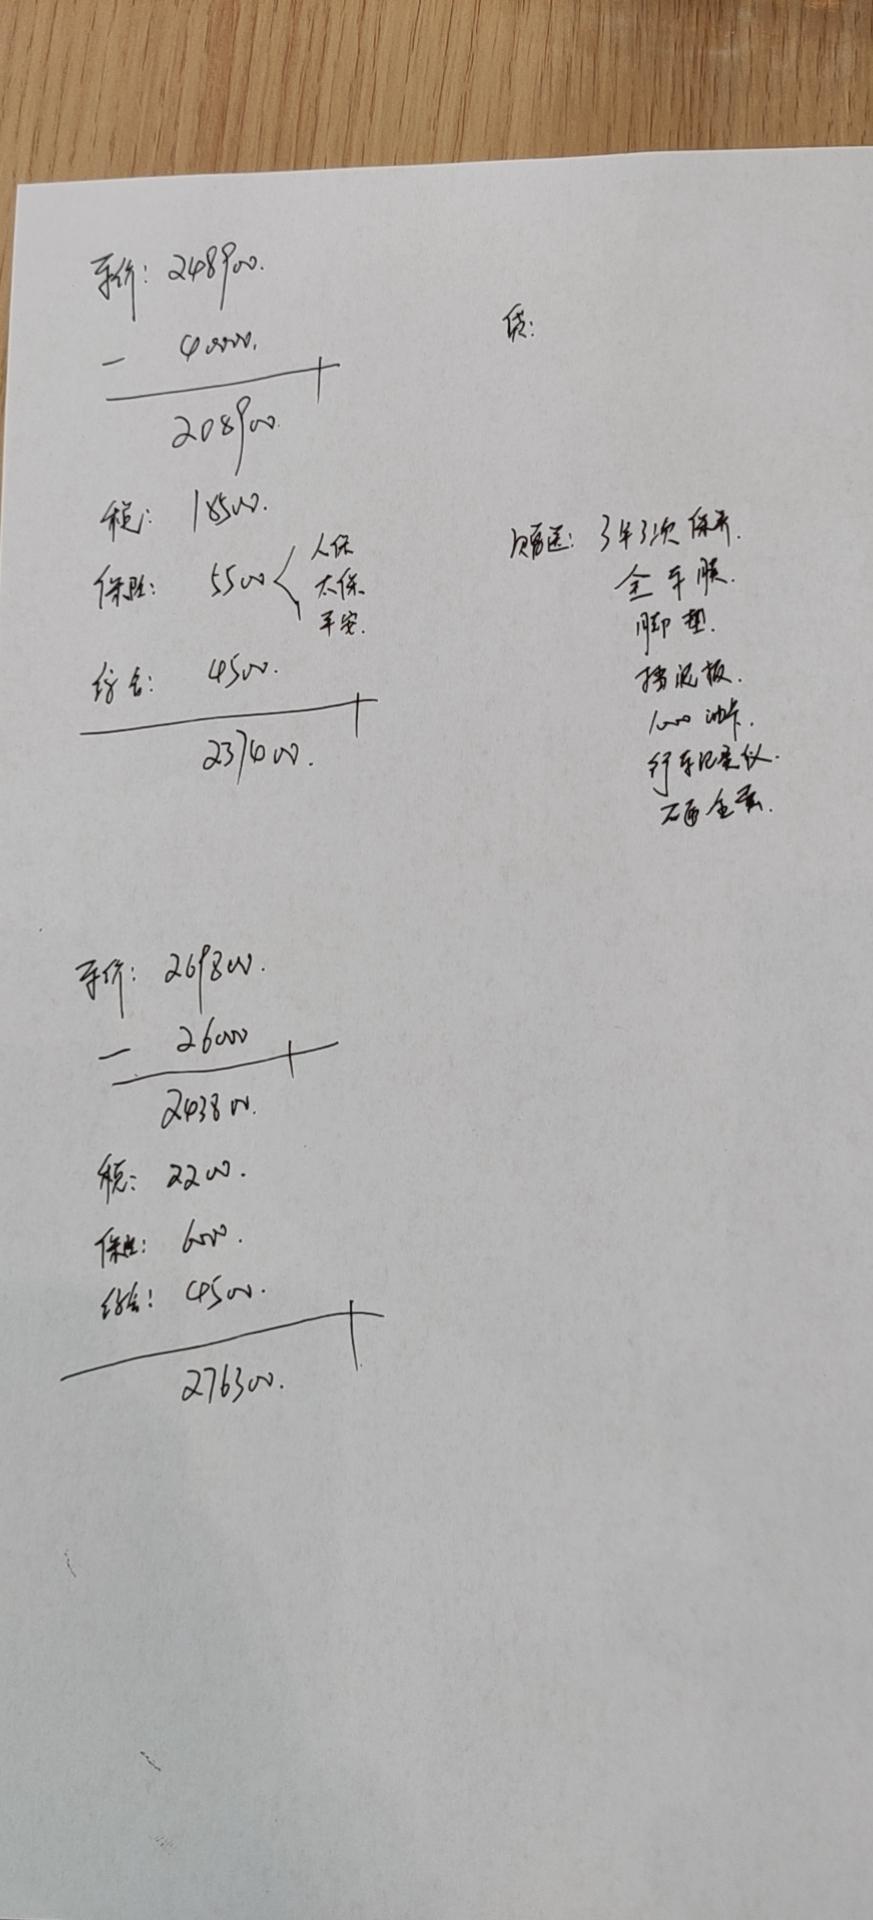 车价: 248900.
- 40000.
208900.
税: 18500.
保险: 5500
人保
太保
平安.
综合: 4500.
237400.
贷:
赠送: 3年3次保养.
全车膜.
脚垫.
挡泥板.
1000油卡.
行车记录仪.
车价: 269800.
- 26000
243800.
税: 2200.
保险: 6000.
综合: 4500.
276300.